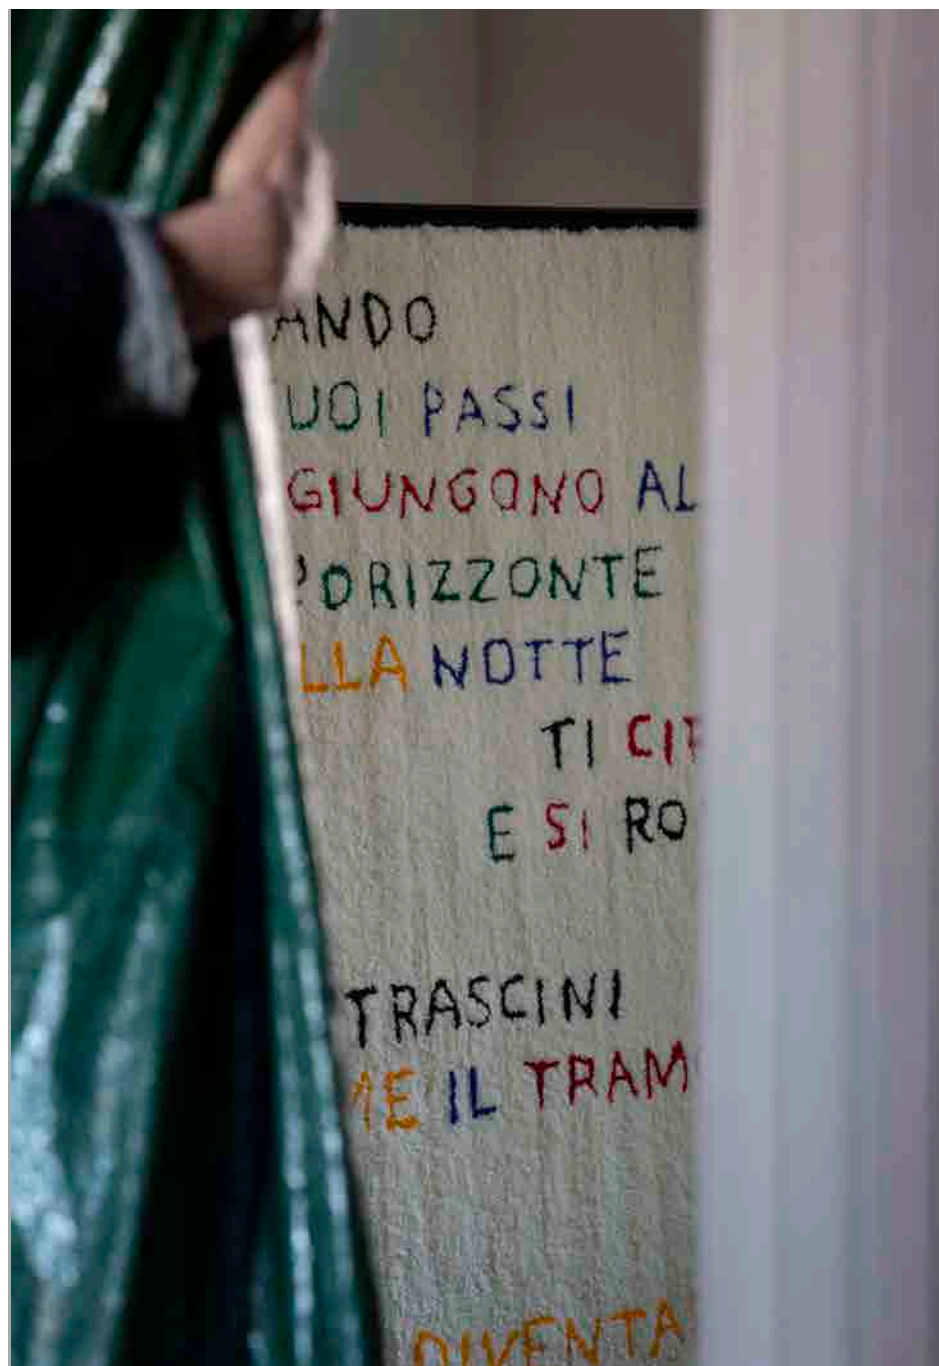 ANDO
UOI PASSI
GIUNGONO AL
'ORIZZONTE
LLA NOTTE
TI CI
E SI RO
TRASCINI
ME IL TRAM
DIVENTA